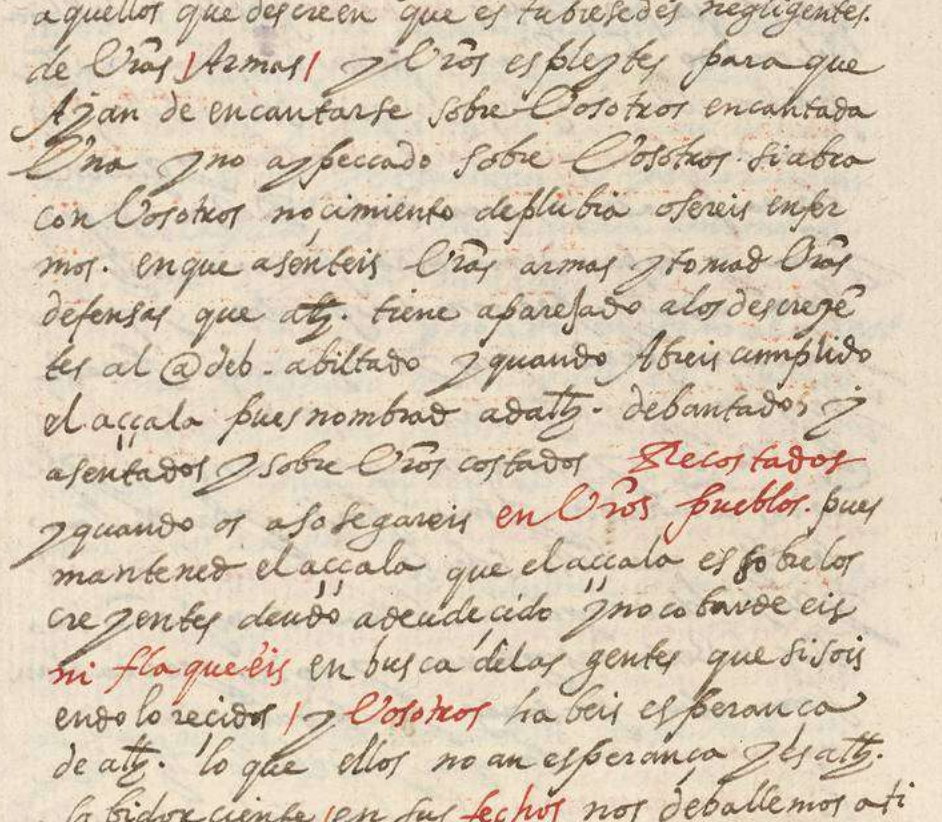 aquellos que descreen que estubiesedes negligentes.
de Vr̃as / Armas / y Vr̃os espleytes para que
Ayan de encantarse sobre Vosotros encantada
Vna y no ay peccado sobre Vosotros. si abra
con Vosotros nocimiento de plubia o sereis enfer
mos. en que asenteis Vr̃as armas y tomad Vr̃as
defensas que alh. tiene aparejado a los descreyẽ
tes al @deb. abiltado y quando Abreis cumplido
el aççala pues nombrad ad alh. debantados y
asentados y sobre Vr̃os costados Recostados
y quando os asosegareis en Vr̃os pueblos. pues
mantened el aççala que el aççala es sobre los
creyentes deudo adeudecido y no cobardeeis
ni flaqueeis en busca de las gentes que si sois
endolorecidos / y Vosotros habeis esperança
de alh. lo que ellos no an esperança y es alh.
sabidor ciente / en sus fechos nos deballemos a ti